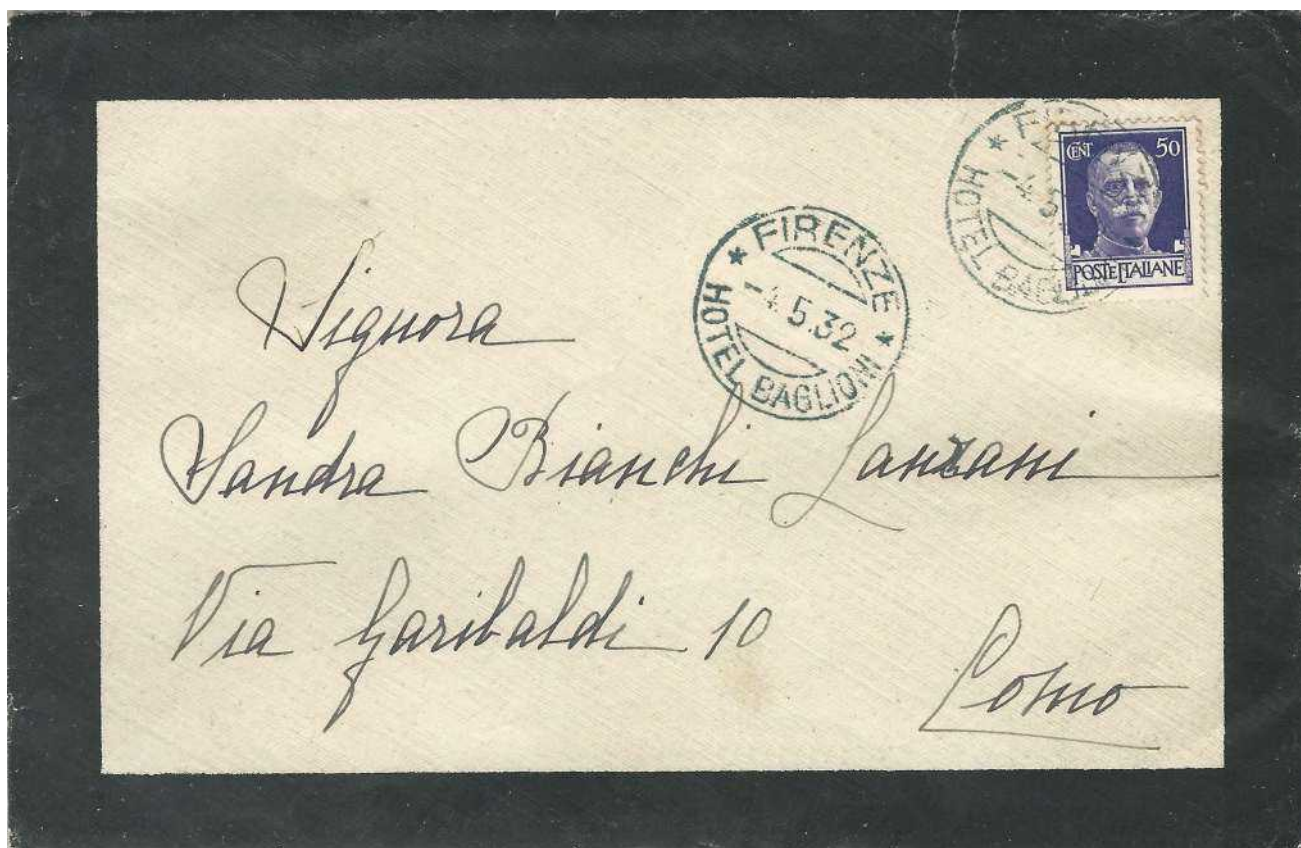 * FIRENZE *
-4.5.32
HOTEL BAGLIONI
CENT 50
POSTE ITALIANE
Signora
Sandra Bianchi Lanzani
Via Garibaldi 10
Como